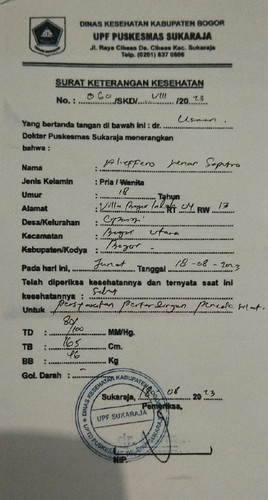 DINAS KESEHATAN KABUPATEN BOGOR
UPF PUSKESMAS SUKARAJA
Jl. Raya Cikeas Ds. Cikeas Kec. Sukaraja
Telp. (0251) 837 0606
SURAT KETERANGAN KESEHATAN
No. : 060 /SKD/ VIII /20 23
Yang bertanda tangan di bawah ini : dr.
Dokter Puskesmas Sukaraja menerangkan
bahwa :
Nama : Saputra
Jenis Kelamin : Pria / Wanita
Umur : 18 Tahun
Alamat : Villa Bogor Indah RT 04 RW 13
Desa/Kelurahan :
Kecamatan : Bogor Utara
Kabupaten/Kodya : Bogor
Pada hari ini, Jumat Tanggal 18-08-2023
Telah diperiksa kesehatannya dan ternyata saat ini
kesehatannya : Sehat
Untuk : Persyaratan Pertandingan Pencak silat.
TD : /100 MM/Hg.
TB : 165 Cm.
BB : 46 Kg
Gol. Darah : -
Sukaraja, 08 20 23
Pemeriksa,
DINAS KESEHATAN KABUPATEN BOGOR
UPF SUKARAJA
NIP.